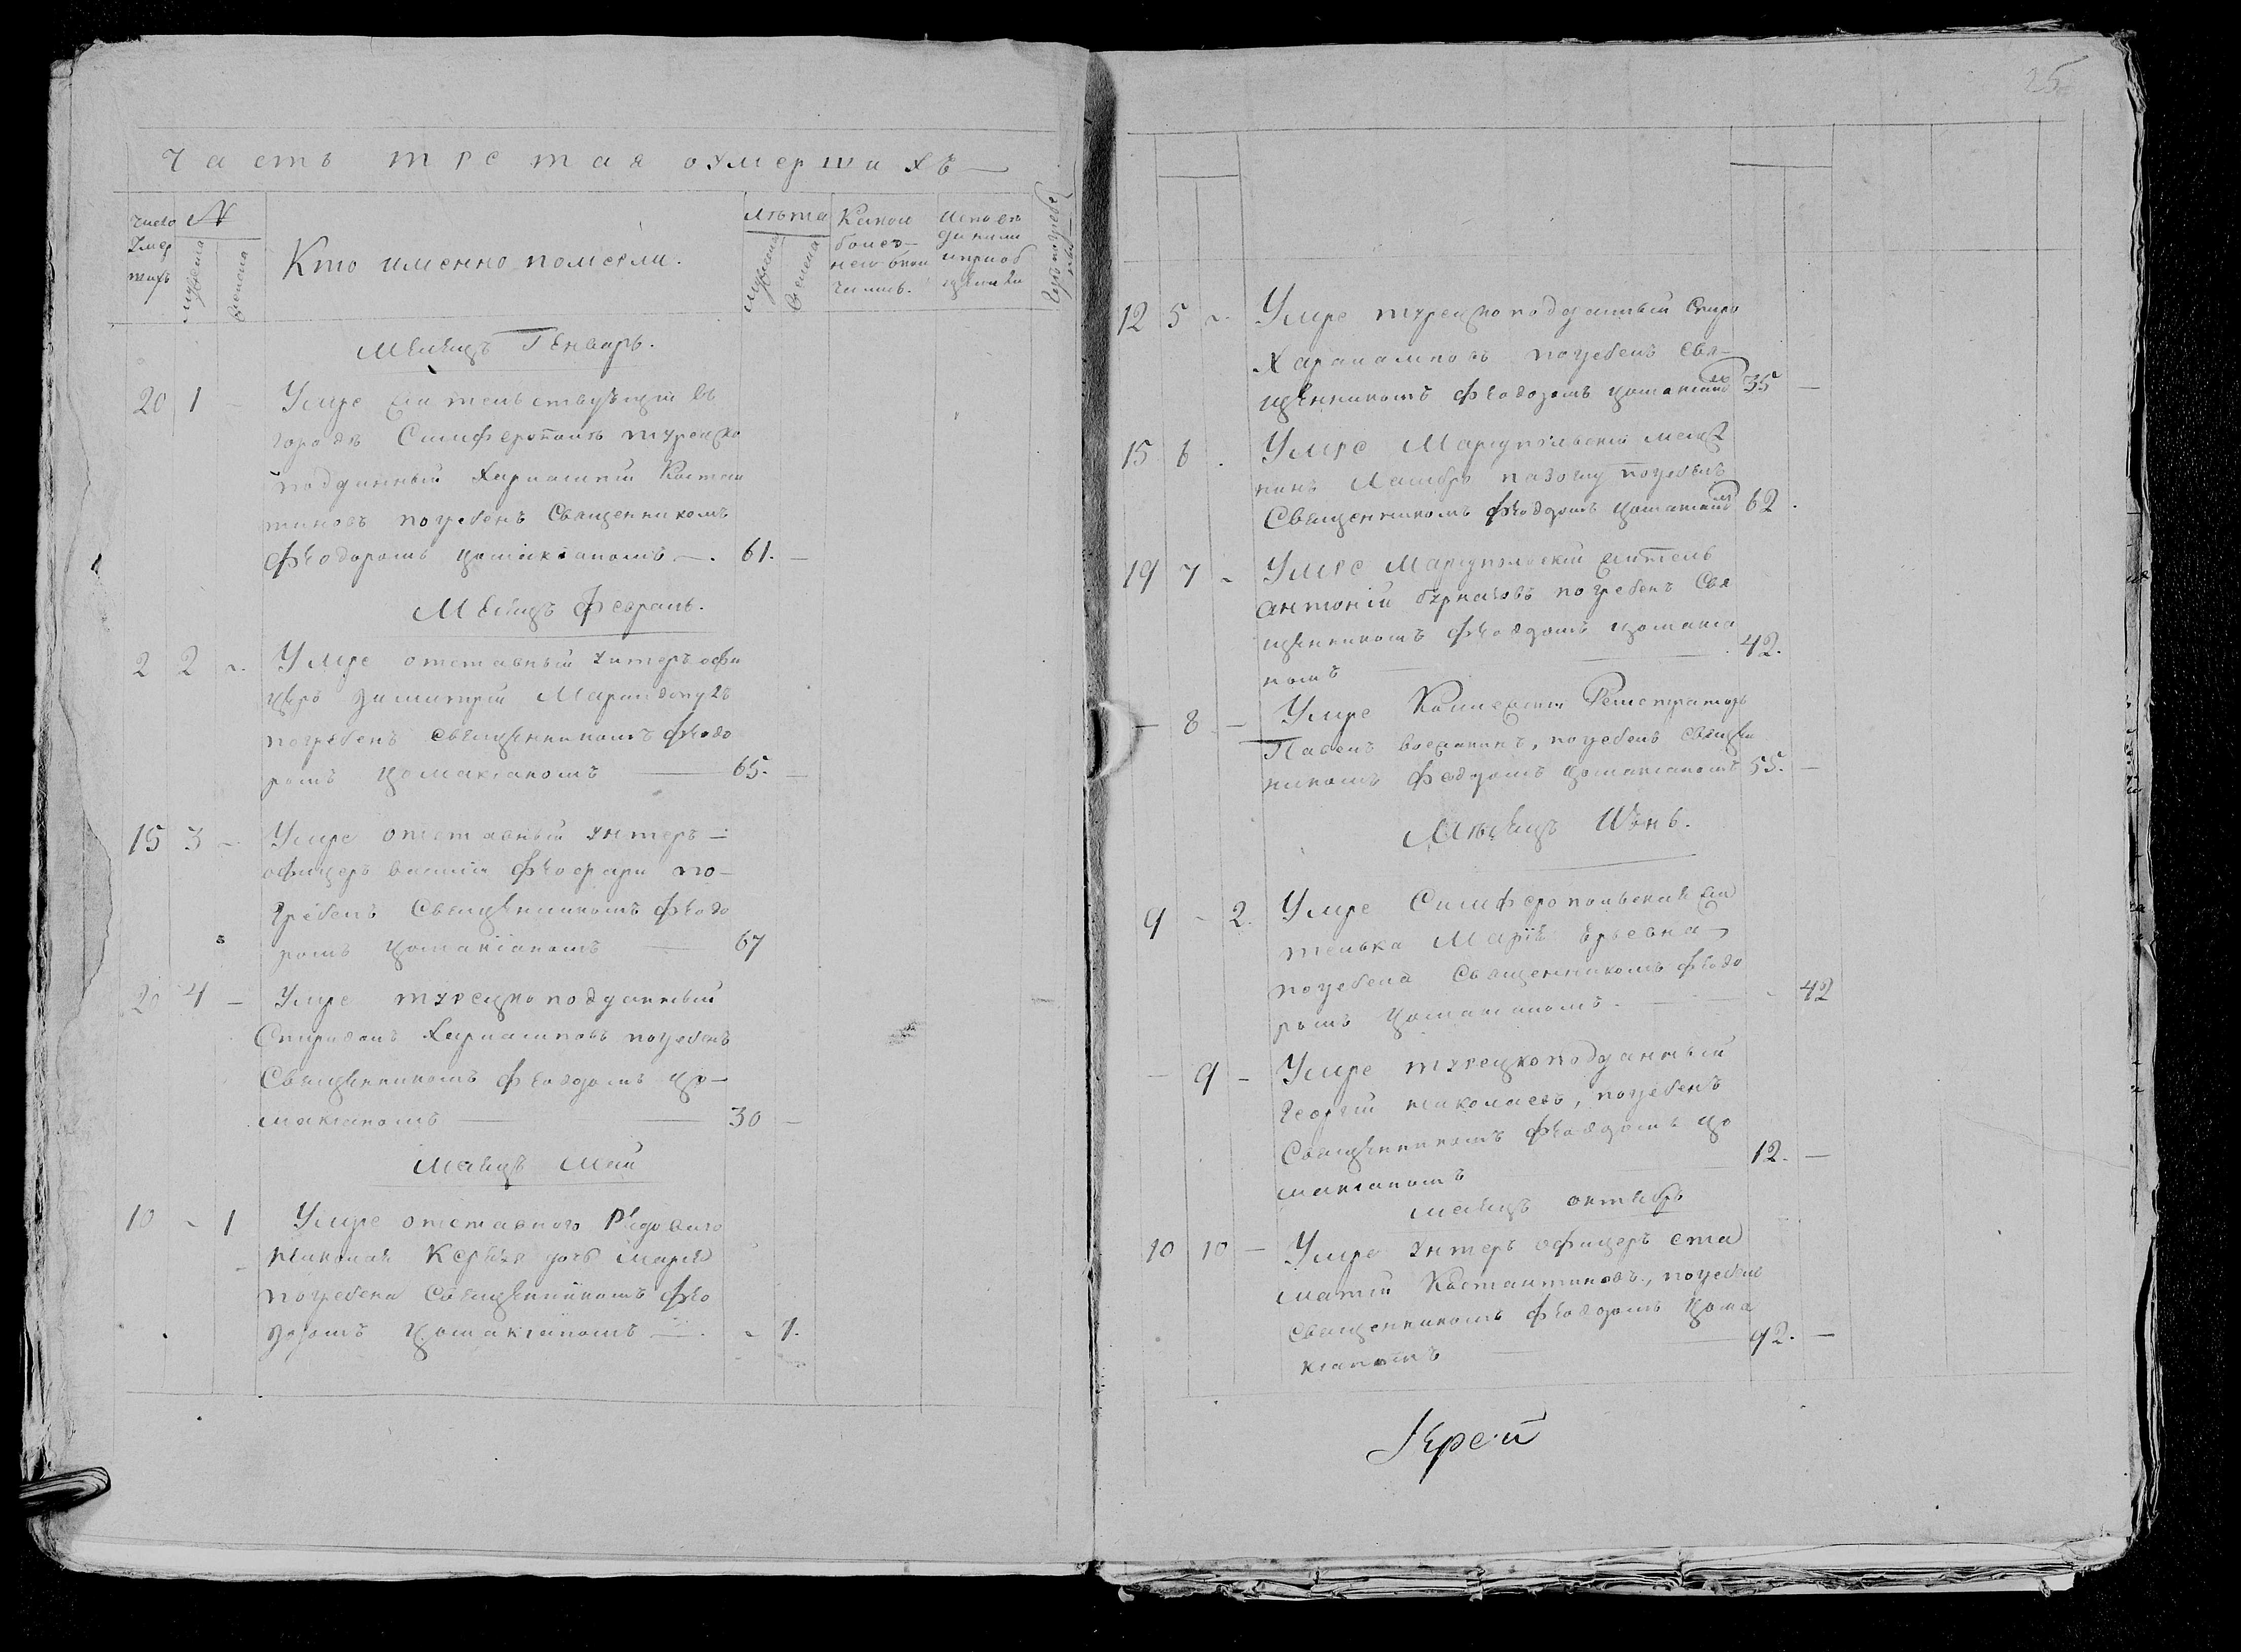 Часть третая оумершихъ
число умер шихъ
№
мужеска
женска
Кто именно померли.
лѣта
мужеска
женска
Какою
болез-
нею
Мѣсяцъ Генварь.
20 1 Умре жительствующій въ
городѣ Симферополѣ турецко
подданный Харлампій Костан
тиновъ погребенъ Священникомъ
Феодоромъ Цомакіаномъ 61.
Мѣсяцъ февраль.
2 2 Умре отставный унтеръ офи
церъ Димитрій
погребенъ священникомъ Феодо
ромъ Цомакіаномъ 65.
15 3 Умре отставный унтеръ-
офицеръ василій по-
гребенъ Священникомъ Феодо
ромъ Цомакіаномъ 67
20 4 Умре турецкоподданный
Спиридонъ Харламповъ погребенъ
Священникомъ Феодоромъ Цо-
макіаномъ 30
Мѣсяцъ Май
10 1 Умре отставного Рядоваго
Николая дочь Марія
погребена Священникомъ Фео
доромъ Цомакіаномъ 7.
25
12 5 Умре турецкоподданный Спиро
Хараламповъ погребенъ свя-
щенникомъ Феодоромъ Цомакіаномъ 35
15 6 Умре Маріупольскій мещ
нинъ погребенъ
Священникомъ Феодоромъ Цомакіаномъ 62.
19 7 Умре Маріупольскій житель
Антоній погребенъ Свя
щенникомъ Феодоромъ Цомакіа
номъ 42.
8 Умре Коллежскій Регистраторъ
Павелъ погребенъ Священ
никомъ Феодоромъ Цомакіаномъ 55.
Мѣсяцъ Іюнь.
9 2. Умре Симферопольская жи
телька Марія Юрьевна
погребена Священникомъ Феодо
ромъ Цомакіаномъ 42
9 Умре турецкоподданный
Георгій Николаевъ, погребенъ
Священникомъ Феодоромъ Цо
макіаномъ 12.
мѣсяцъ октябрь
10 10 Умре унтеръ офицеръ Ста
матій Костантиновъ, погребенъ
Священникомъ Феодоромъ Цома
кіаномъ 92.
Іерей